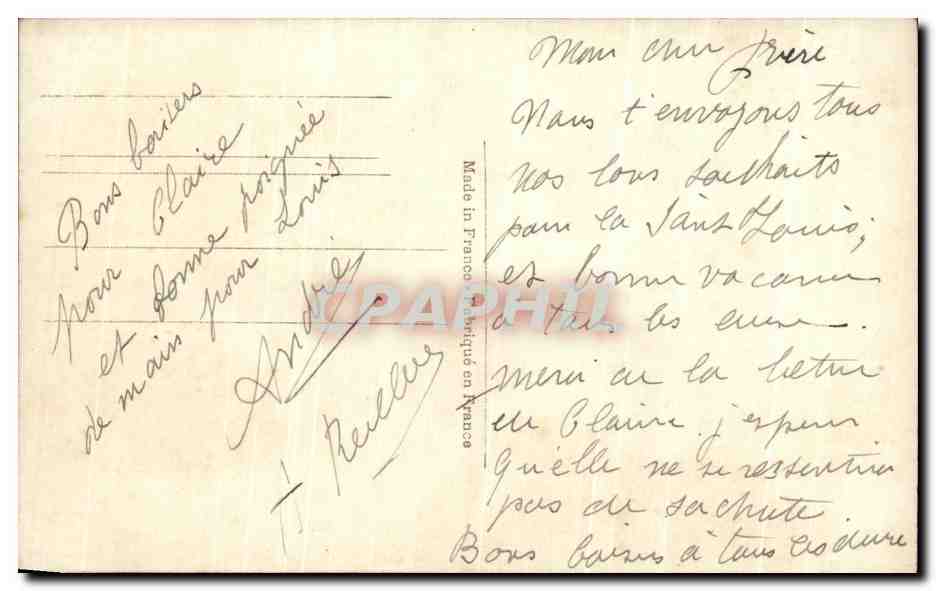 Bons baisers
pour Claire
et bonne poignée
de mains pour Louis
André
Mon cher frère
Nous t'envoyons tous
nos bons souhaits
pour la Saint Louis,
et bonne vacances
a tous les deux.
merci de la lettre
de Claire j'espère
Qu'elle ne se ressentira
pas de sa chute.
Bons baisers à tous les deux
Made in France - Fabriqué en France
CPAPHIL